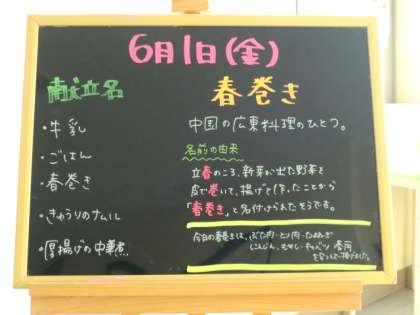 6月1日(金)
献立名
・牛乳
・ごはん
・春巻き
・きゅうりのナムル
・厚揚げの中華煮
春巻き
中国の広東料理のひとつ。
名前の由来
立春のころ、新芽が出た野菜を
皮で巻いて、揚げて作ったことから
「春巻き」と名付けられたそうです。
今日の春巻きは、ぶた肉・とり肉・たまねぎ
にんじん、もやし・キャベツ・春雨
を